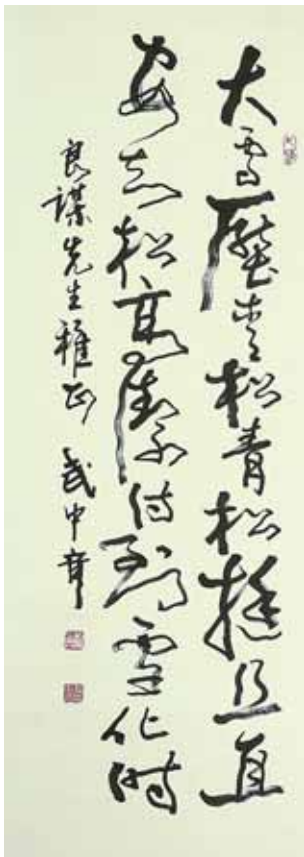 大雪壓青松青松挺且直
要知松高潔待到雪化時
良謀先生雅正 武中奇